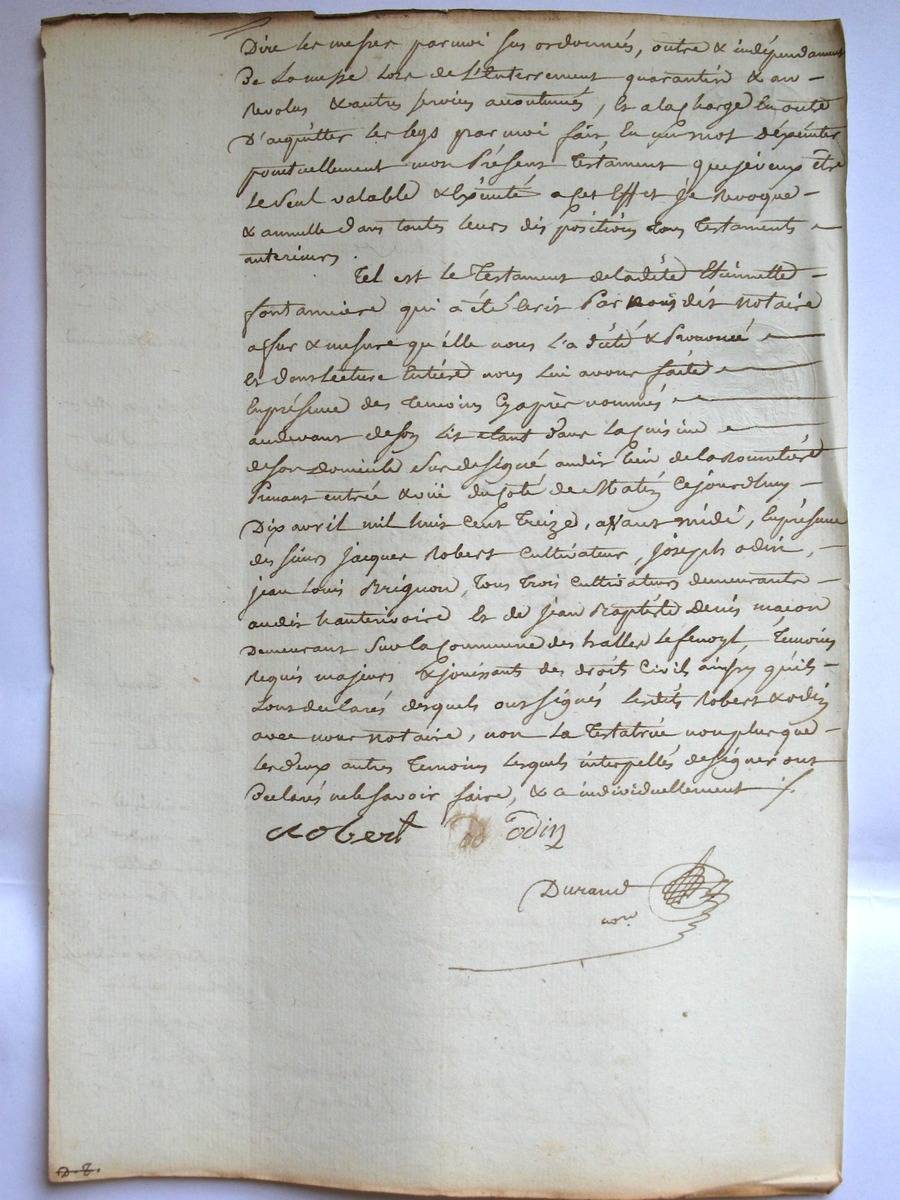 Dire les messes par moi sus ordonnés, outre & indépendament
De La messe lors de L'Enterrement quarantin & an –
revolus & autres services acoutumés, Et a la charge En outre
D'acquitter les legs par moi fait, En un mot d'Exécuter
ponctuellement mon Présent Testament que je veux être
Le Seul valable & Exécuté a cet Effet je Revoque –
& annulle dans toutes leurs dispositions tous Testaments
anterieurs.
Tel est le Testament de ladite Etiennette –
fontanniere qui a été Ecrit Par nous dit notaire
a fur & mesure qu'elle nous l'a dicté & Prononcé
Et dont lecture Entiere nous lui avons faite
En présence des Temoins Cy après nommés
au devant de son Lit étant dans la Cuisine
de son domicile Sus designé audit lieu de la
Prenant entrée & vüe du Coté de Matin Cejourdhuy –
Dix avril mil huit Cent Treize, avant midi, En présence
des sieurs jacques Robert Cultivateur, joseph odin, –
jean Louis Brignon, Tous Trois Cultivateurs demeurants –
audit hauterivoire Et de jean Baptiste denis maçon
Demeurant Sur la Commune des halles Le fenoyl, Temoins
Requis majeurs & jouissants des droits Civil ainsy qu'ils –
Sont declarés desquels ont signés Lesdits Robert & odin
avec nous notaire, non La Testatrice non plus que –
Les deux autres Temoins Lesquels interpellés de signer ont
Declarés ne le Savoir faire, & ce individuellement ./.
Robert od odin
Durand
nore